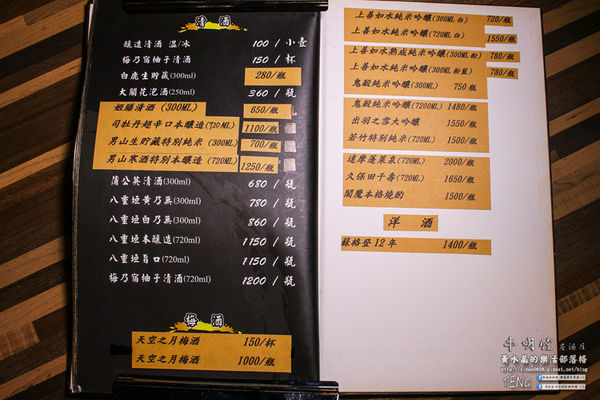 清酒
釀造清酒 溫/冰 100 / 小壺
梅乃宿柚子清酒 150 / 杯
白鹿生貯藏(300ml) 280/瓶
大關花泡酒(250ml) 360 / 瓶
姬膳清酒 (300ML) 650/瓶
司牡丹超辛口本釀造(720ML) 1100/瓶
男山生貯藏特別純米 (300ML) 700/瓶
男山寒酒特別本釀造 (720ML) 1250/瓶
蒲公英清酒(300ml) 680 / 瓶
八重垣黃乃無(300ml) 780 / 瓶
八重垣白乃無(300ml) 860 / 瓶
八重垣本釀造(720ml) 1150 / 瓶
八重垣旨口(720ml) 1150 / 瓶
梅乃宿柚子清酒(720ml) 1200 / 瓶
梅酒
天空之月梅酒 150/杯
天空之月梅酒 1000/瓶
上善如水純米吟釀(300ML 白) 720/瓶
上善如水純米吟釀(720ML 白) 1550/瓶
上善如水熟成純米吟釀(300ML 粉) 780/瓶
上善如水純米吟釀(300ML 粉藍) 780/瓶
鬼殺純米吟釀(300ML) 750 /瓶
鬼殺純米吟釀(7200ML) 1480/瓶
出羽之雪大吟釀 1550/瓶
若竹特別純米(720ML) 1500/瓶
達摩蓬萊泉(720ML) 2000/瓶
久保田千壽(720ML) 1650/瓶
閻魔本格燒酌 1500/瓶
洋酒
蘇格登 12 年 1400/瓶
牛明燈 居酒屋
黃水晶的樂活部落格
TENG